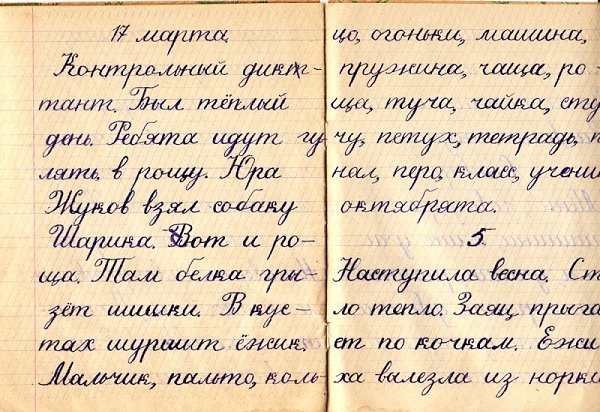 17 марта.
Контрольный дик-
тант. Был тёплый
день. Ребята идут гу
лять в рощу. Юра
Жуков взял собаку
Шарика. Вот и ро-
ща. Там белка гры
зёт шишки. В кус-
тах шуршит ёжик.
Мальчик, пальто, коль-
цо, огоньки, машина,
пружина, чаща, ро-
ща, туча, чайка, сту
чу, петух, тетрадь, п
нал, перо, класс, учени
октябрята.
5
Наступила весна. Ст
ло тепло. Заяц прыга
ет по кочкам. Ежи
ха вылезла из норки